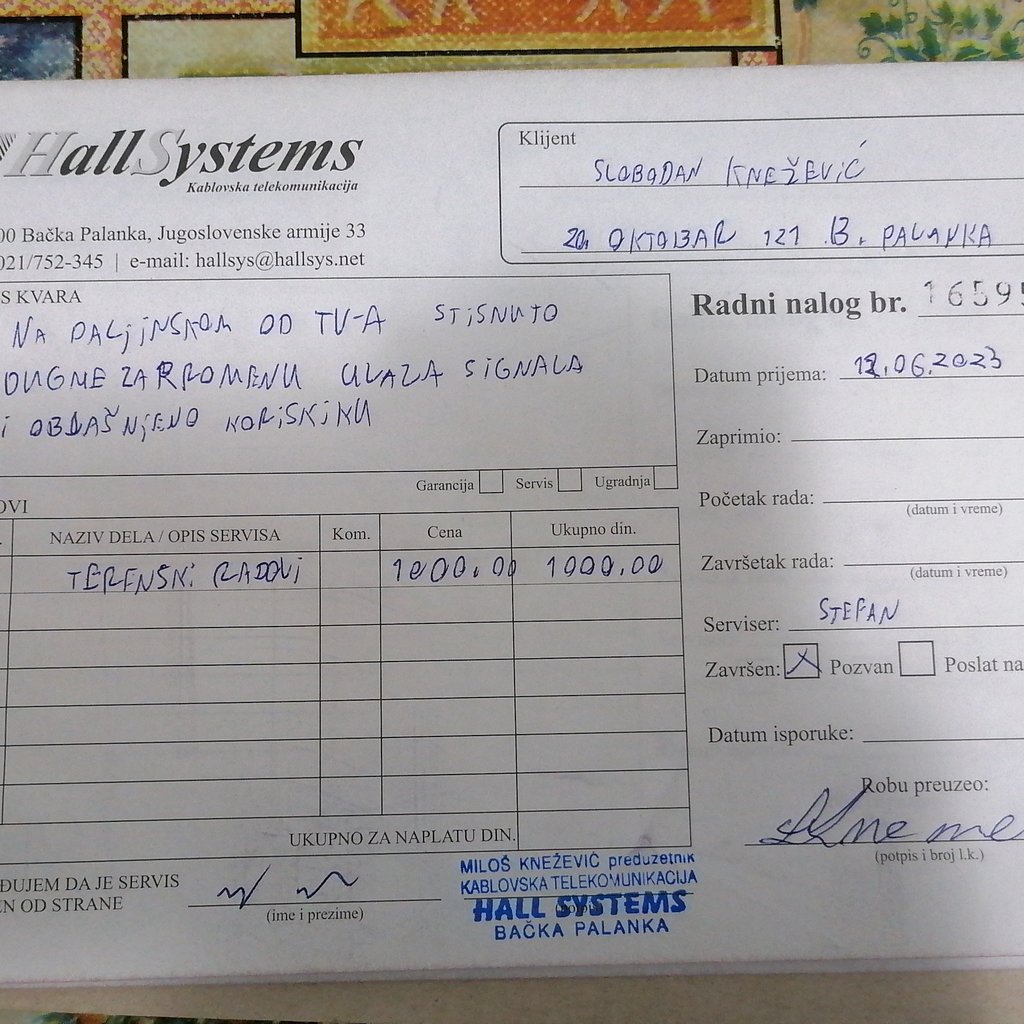 HallSystems
Kablovska telekomunikacija
00 Bačka Palanka, Jugoslovenske armije 33
021/752-345 | e-mail: hallsys@hallsys.net
Klijent
SLOBODAN KNEŽEVIĆ
20. OKTOBAR 121 B. PALANKA
S KVARA
NA DALJINSKOM OD TV-A STISNUTO
DUGME ZA PROMENU ULAZA SIGNALA
I OBJAŠNJENO KORISNIKU
Garancija Servis Ugradnja
Radni nalog br. 16595
Datum prijema: 12.06.2023
Zaprimio:
Početak rada:
(datum i vreme)
Završetak rada:
(datum i vreme)
Serviser: STEFAN
Završen: X Pozvan Poslat na
Datum isporuke:
Robu preuzeo:
(potpis i broj l.k.)
OVI
NAZIV DELA / OPIS SERVISA Kom. Cena Ukupno din.
TERENSKI RADOVI 1000.00 1000.00
UKUPNO ZA NAPLATU DIN.
ĐUJEM DA JE SERVIS
EN OD STRANE
(ime i prezime)
MILOŠ KNEŽEVIĆ preduzetnik
KABLOVSKA TELEKOMUNIKACIJA
HALL SYSTEMS
BAČKA PALANKA